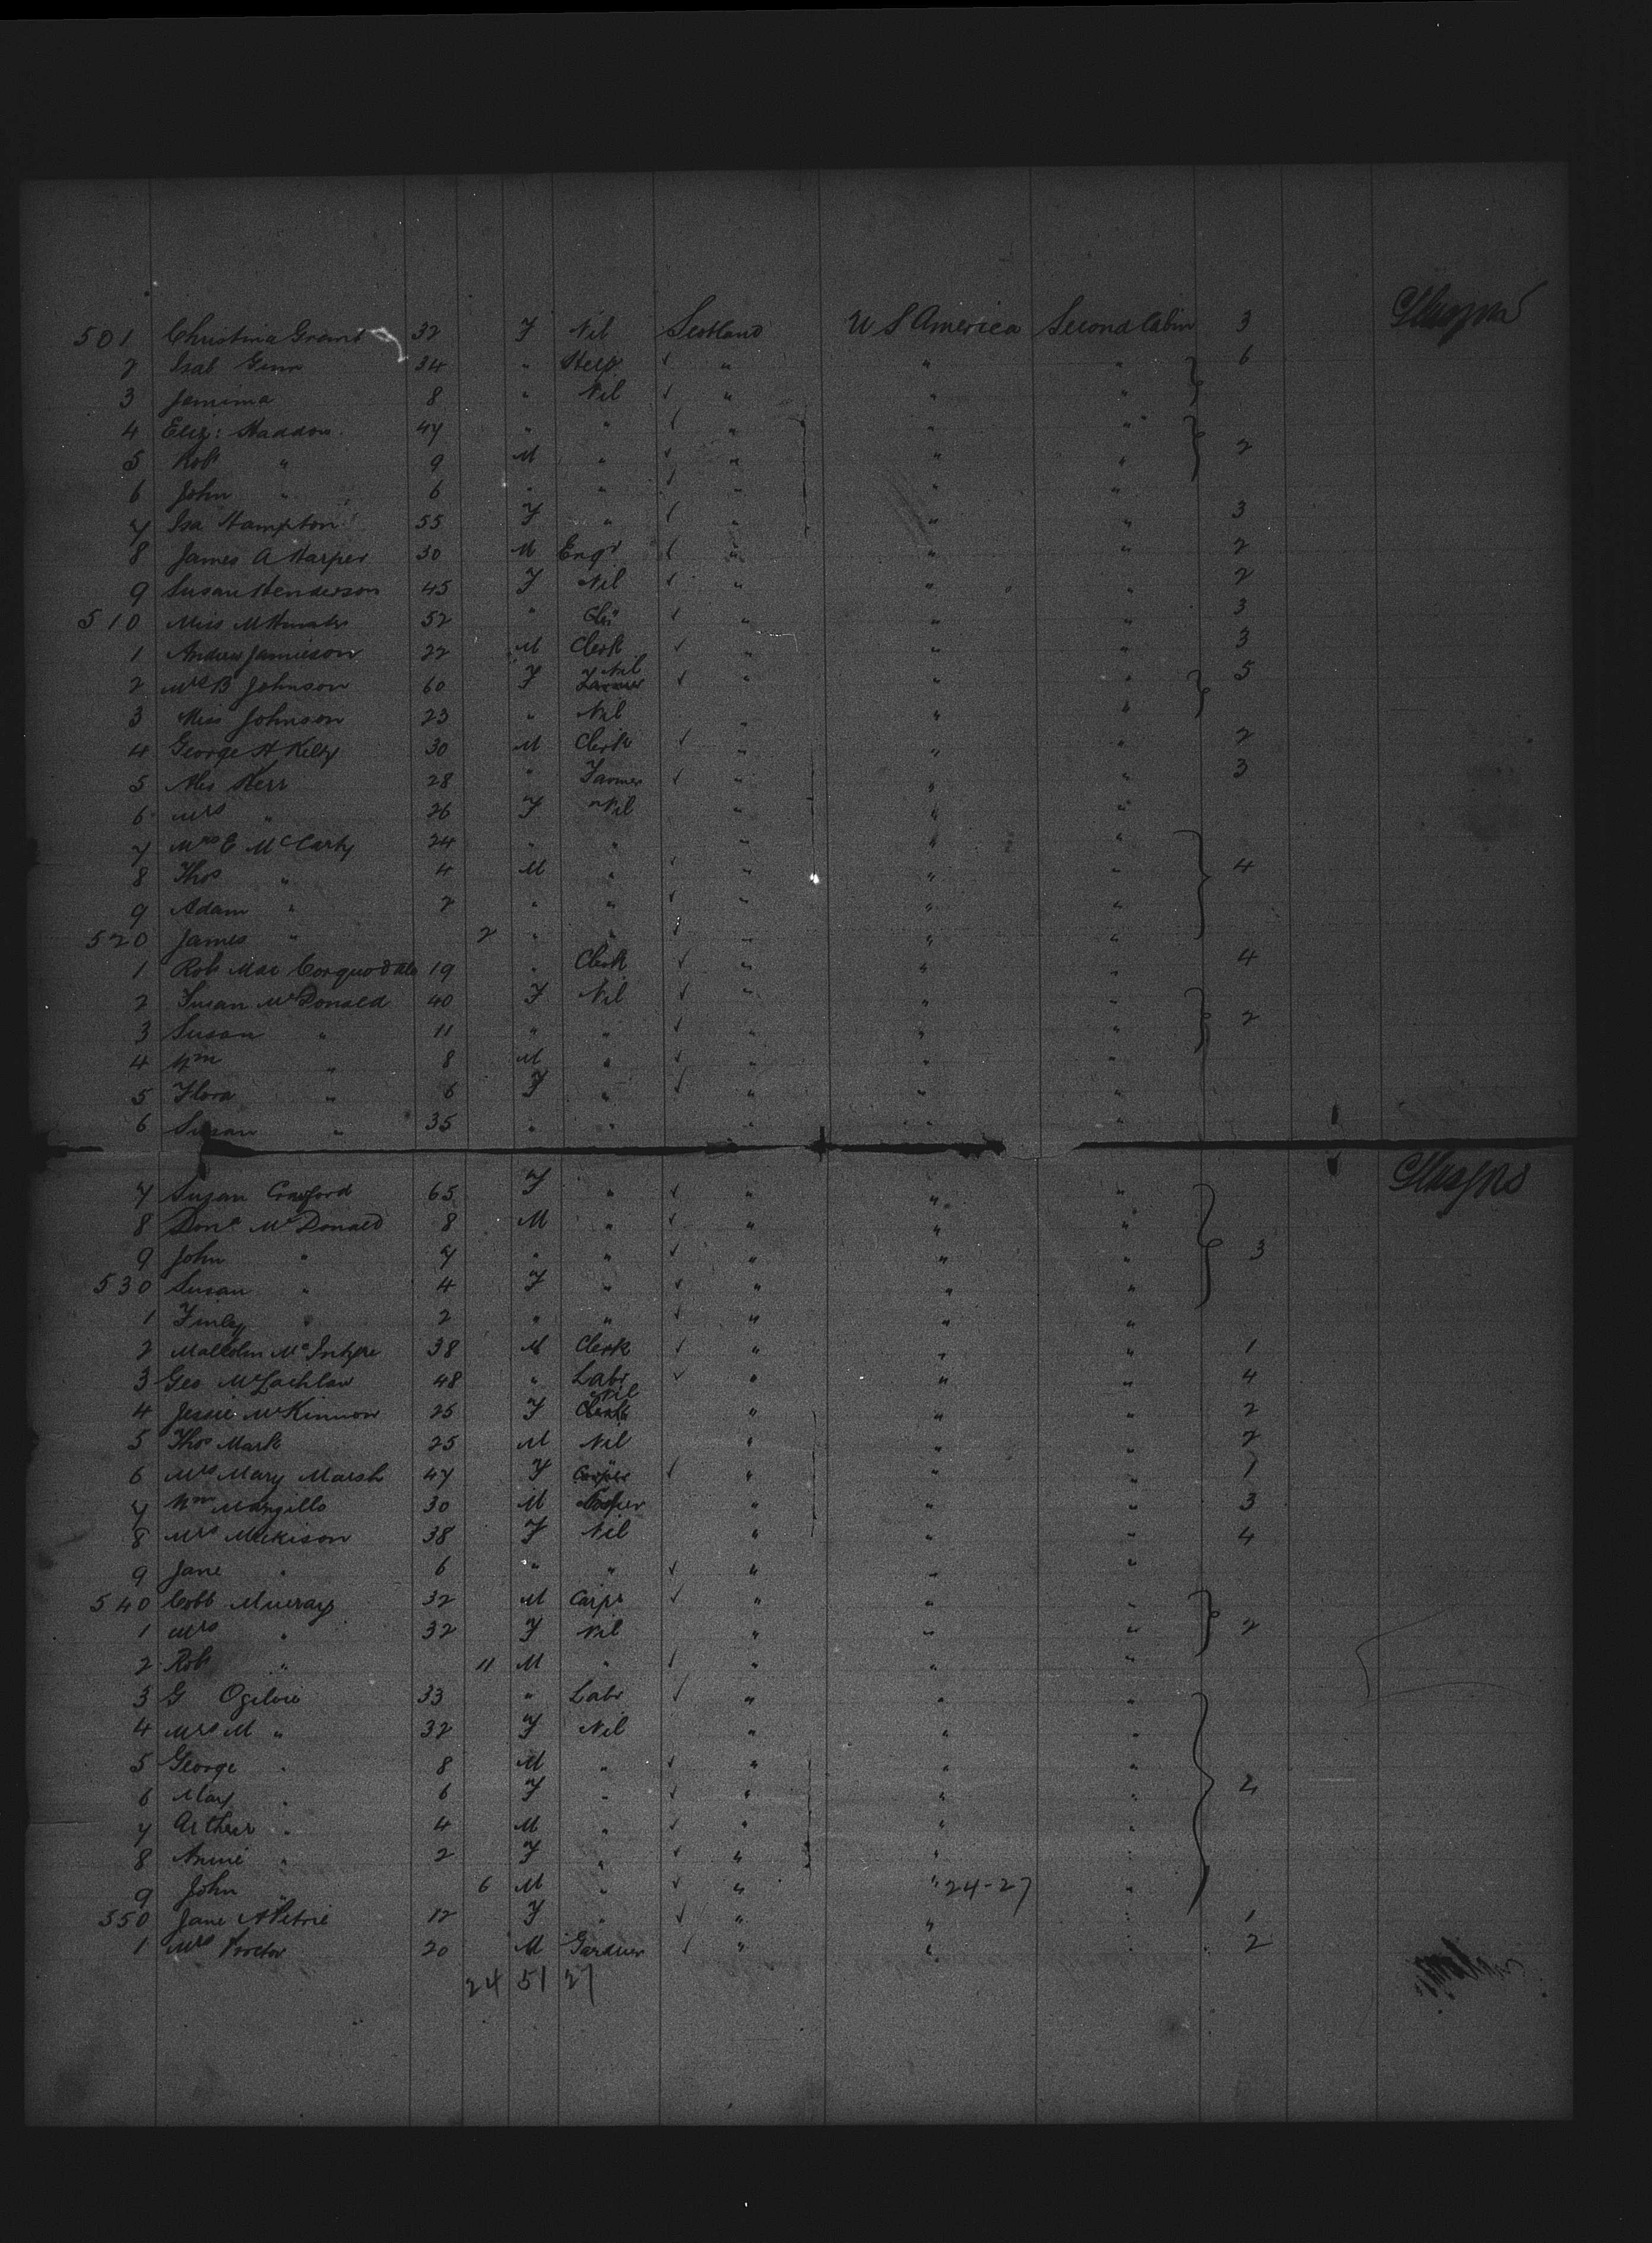 501 Christina Grant 32 F Nil Scotland U S America Second Cabin 3 Glasgow
2 Isab Gunn 34 " Help " " " 6
3 Jemima 8 " Nil " " "
4 Eliz: Haddow 47 " " " " "
5 Robt " 9 M " " " " 2
6 John " 6 " " " " "
7 Isa Hampton 55 F " " " " 3
8 James A Harper 30 M Engr " " " 2
9 Susan Henderson 45 F Nil " " " 2
510 Miss M 52 " " " " 3
1 Andrew Jamieson 22 M Clerk " " " 3
2 Mrs B Johnson 60 F Nil " " " 5
3 Miss Johnson 23 " Nil " " "
4 George H Kelly 30 M Clerk " " " 2
5 Alex Kerr 28 " Farmer " " " 3
6 Mrs " 26 F Nil " " "
7 Mrs E McCarty 24 " " " " "
8 Thos " 4 M " " " " 4
9 Adam " 2 " " " " "
520 James " 2 " " " " "
1 Robt Mac Corquodale 19 " Clerk " " " 4
2 Susan McDonald 40 F Nil " " "
3 Susan " 11 " " " " " 2
4 Wm " 8 M " " " "
5 Flora " 6 F " " " "
6 Susan " 35 " " " " "
7 Susan Crawford 65 F " " " " Glasgow
8 Dond McDonald 8 M " " " "
9 John " 7 " " " " " 3
530 Susan " 4 F " " " "
1 Finlay " 2 " " " " "
2 Malcolm McIntyre 38 M Clerk " " " 1
3 Geo McLachlan 48 " Labr " " " 4
4 Jessie McKinnon 25 F Nil " " " 2
5 Thos Mark 25 M Nil " " " 2
6 Mrs Mary Marsh 47 F " " " 1
7 Wm 30 M " " " 3
8 Mrs Mekison 38 F Nil " " " 4
9 Jane " 6 " " " " "
540 Murray 32 M Carpr " " "
1 Mrs " 32 F Nil " " " 2
2 Robt " 11 M " " " "
3 G Ogilvie 33 " Labr " " "
4 Mrs M " 32 F Nil " " "
5 George " 8 M " " " "
6 Mary " 6 F " " " " 4
7 Arthur " 4 M " " " "
8 Annie " 2 F " " " "
9 John " 6 M " " " 24-27 "
550 Jane A Petrie 12 F " " " " 1
1 Mrs Proctor 20 M Gardner " " " 2
24 51 27